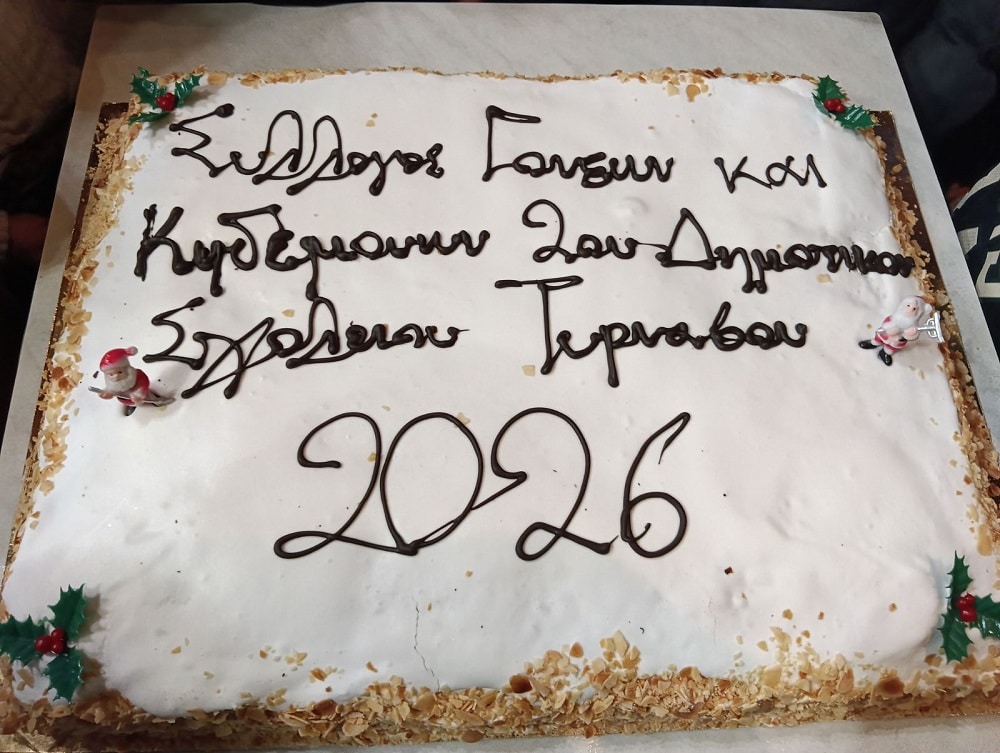 Συλλογος Γονεων και
Κηδεμονων 2ου Δημοτικου
Σχολειου Τυρναβου
2026